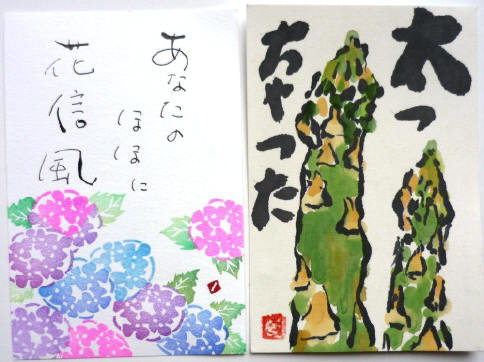 あなたの
ほほに
花信風
太っ
ちゃった